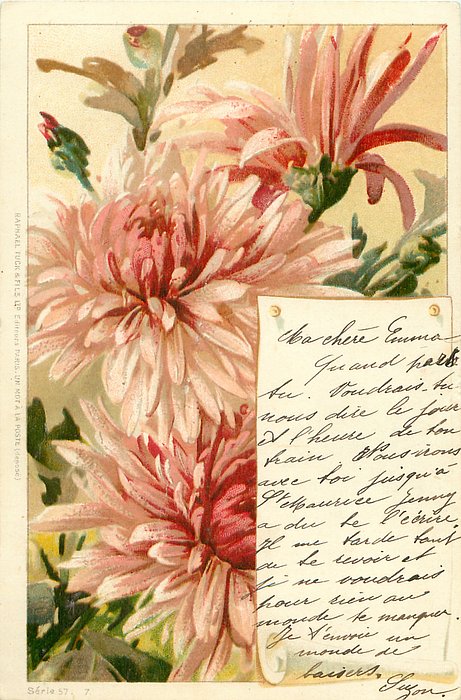 Ma chère Emma
Quand pars
tu. Voudrais-tu
nous dire le jour
et l'heure de ton
train Nous irons
avec toi jusqu'à
St Maurice Jenny
a du te l'écrire.
Il me tarde tant
de te revoir et
je ne voudrais
pour rien au
monde te manquer.
Je t'envoie un
monde de
baisers.
Suzon.
RAPHAEL TUCK & FILS Ltd Editeurs PARIS. UN MOT À LA POSTE (déposé)
Série 57. 7